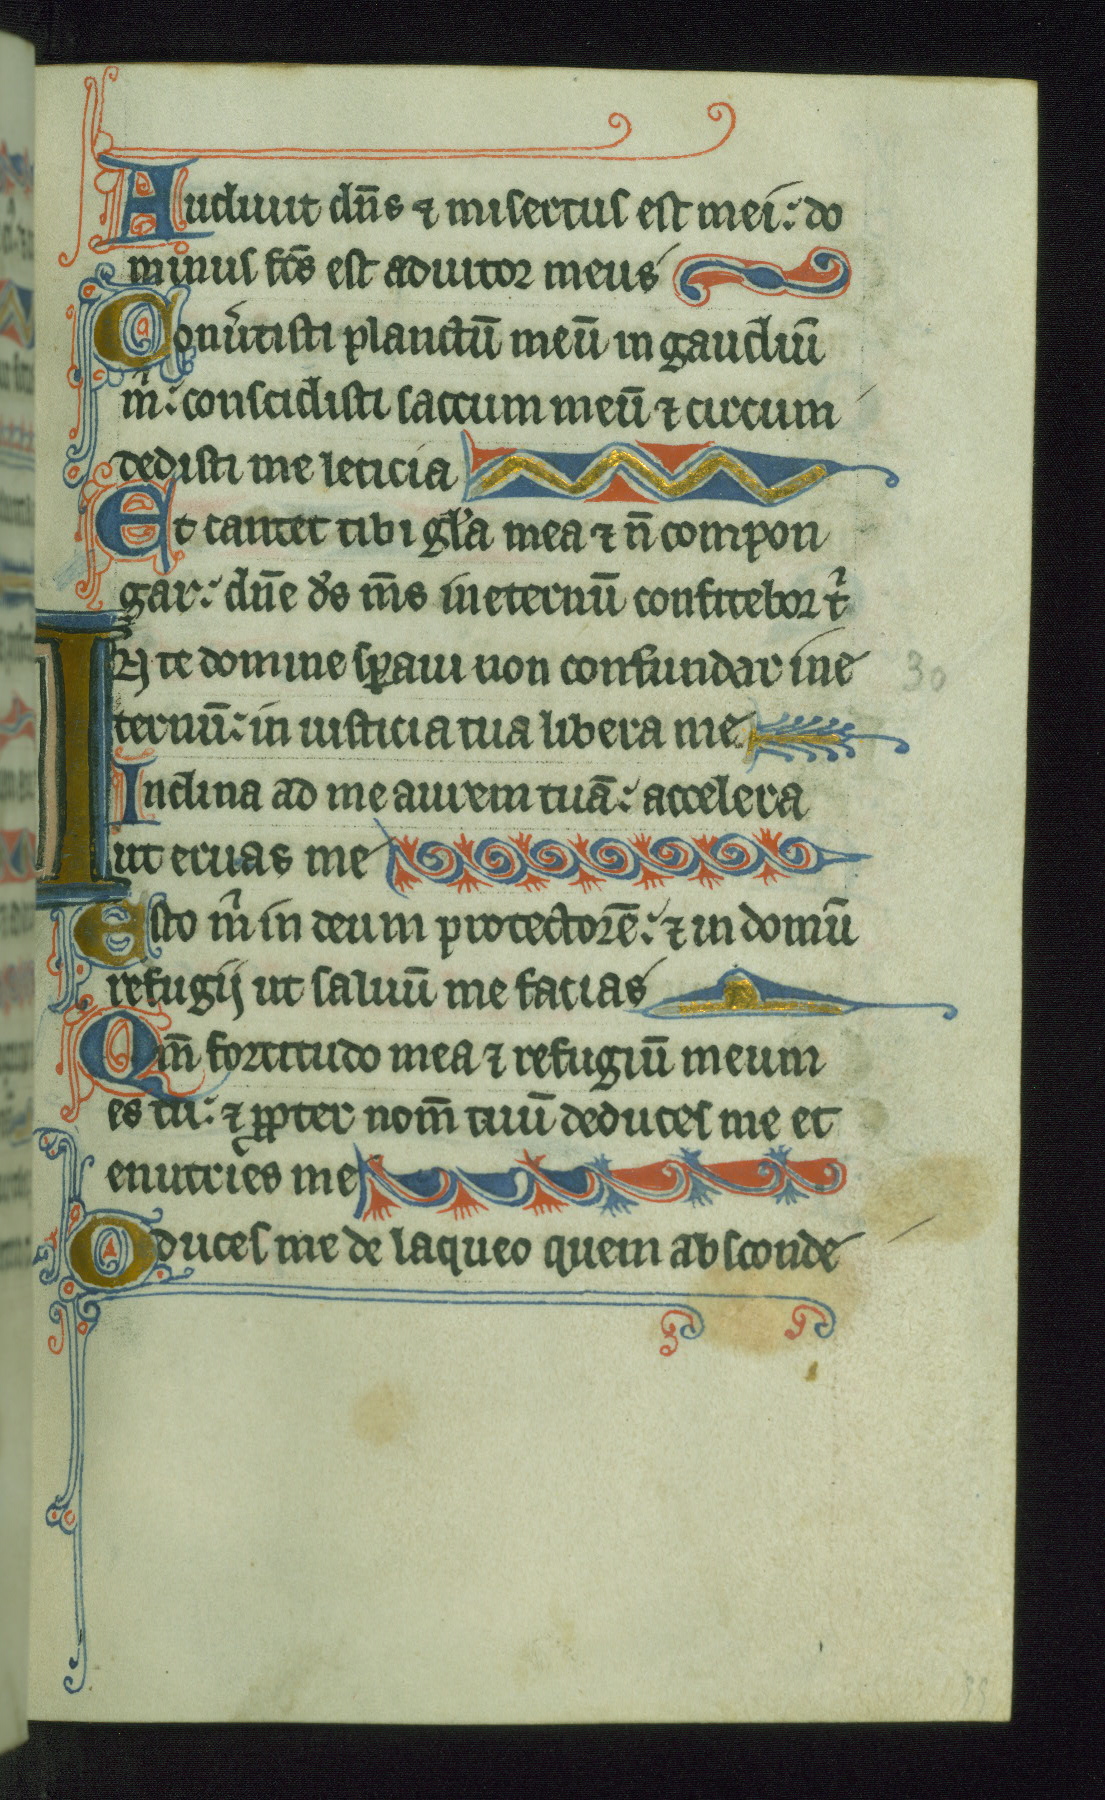 Audiuit dn̄s ⁊ misertus est mei: do
minus fc̄s est adiutor meus
Conu̾tisti planctū meū in gaudiū
m̍: conscidisti saccum meū ⁊ circum
dedisti me leticia
Et cantet tibi gl̄a mea ⁊ n̄ compon
gar: dn̄e d̾s m̄s in eternū confitebor t̍
IN te domine sꝑaui non confundar in e
ternū: in iusticia tua libera me
30
Inclina ad me aurem tuā: accelera
ut eruas me
Esto m̍ in deum protectorē: ⁊ in domū
refugij ut saluū me facias
Qm̄ fortitudo mea ⁊ refugiū meum
es tu: ⁊ ꝓpter nom̄ tuū deduces me et
enutries me
Educes me de laqueo quem absconde